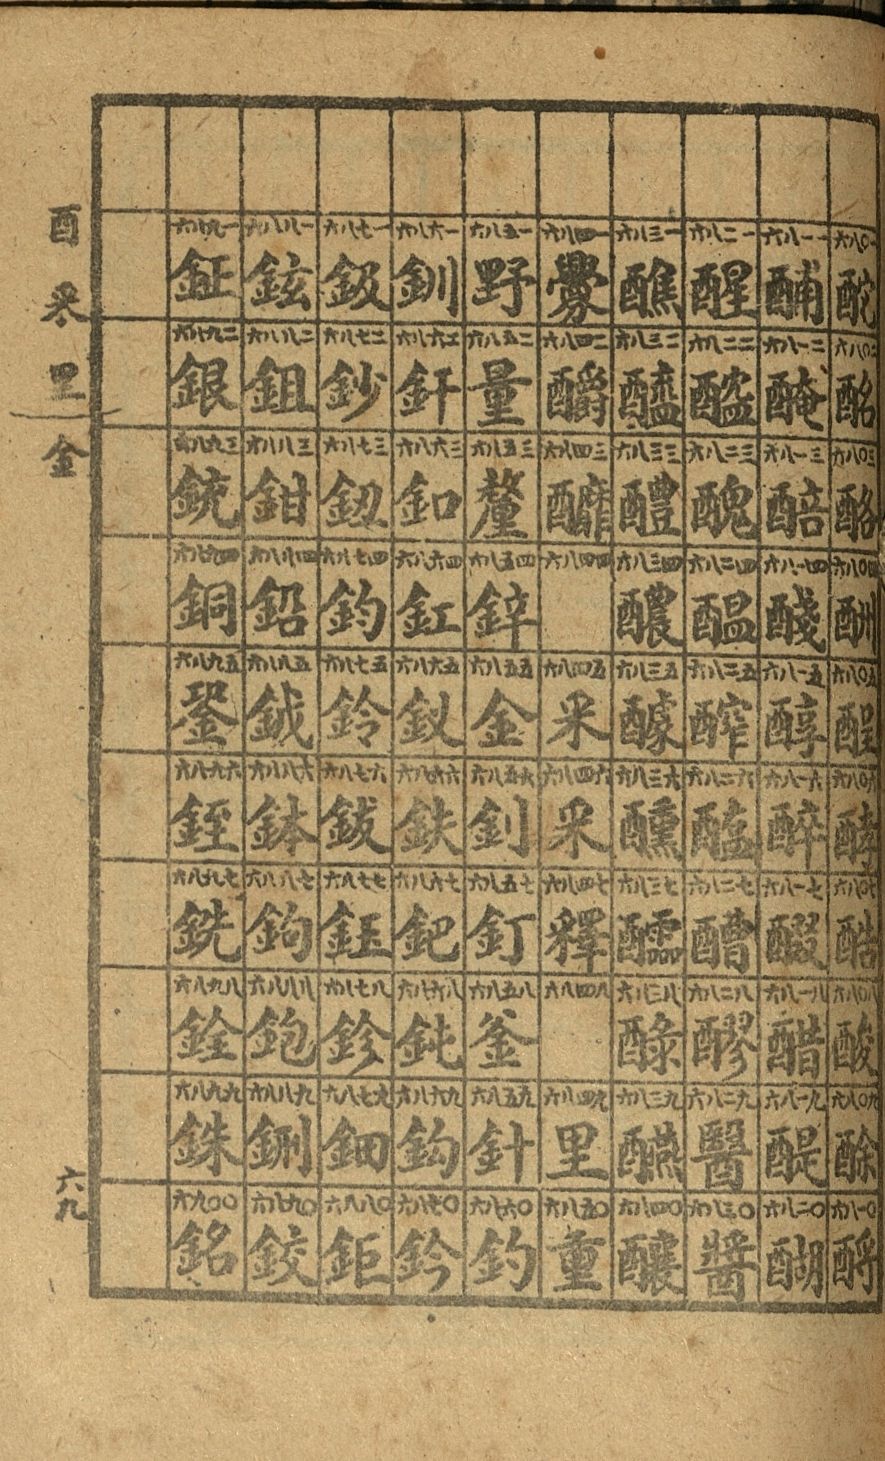 六八〇一 酡
六八〇二 酩
六八〇三 酪
六八〇四 酬
六八〇五 酲
六八〇六 酵
六八〇七 酷
六八〇八 酸
六八〇九 酴
六八一〇 酹
六八一一 酺
六八一二 醃
六八一三 醅
六八一四 醆
六八一五 醇
六八一六 醉
六八一七 醊
六八一八 醋
六八一九 醍
六八二〇 醐
六八二一 醒
六八二二 醠
六八二三 醜
六八二四 醞
六八二五 醡
六八二六 醢
六八二七 醩
六八二八 醪
六八二九 醫
六八三〇 醬
六八三一 醮
六八三二 醯
六八三三 醴
六八三四 醲
六八三五 醵
六八三六 醺
六八三七 醹
六八三八 醁
六八三九 醼
六八四〇 釀
六八四一 釁
六八四二 釂
六八四三 醿
六八四四
六八四五 釆
六八四六 采
六八四七 釋
六八四八
六八四九 里
六八五〇 重
六八五一 野
六八五二 量
六八五三 釐
六八五四 鋅
六八五五 金
六八五六 釗
六八五七 釘
六八五八 釜
六八五九 針
六八六〇 釣
六八六一 釧
六八六二 釬
六八六三 釦
六八六四 釭
六八六五 釵
六八六六 鈇
六八六七 鈀
六八六八 鈍
六八六九 鈎
六八七〇 鈐
六八七一 鈒
六八七二 鈔
六八七三 鈕
六八七四 鈞
六八七五 鈴
六八七六 鈸
六八七七 鈺
六八七八 鉁
六八七九 鈿
六八八〇 鉅
六八八一 鉉
六八八二 鉏
六八八三 鉗
六八八四 鉛
六八八五 鉞
六八八六 鉢
六八八七 鉤
六八八八 鉋
六八八九 鉶
六八九〇 鉸
六八九一 鉦
六八九二 銀
六八九三 銃
六八九四 銅
六八九五 銎
六八九六 銍
六八九七 銑
六八九八 銓
六八九九 銖
六九〇〇 銘
酉釆里金
六九